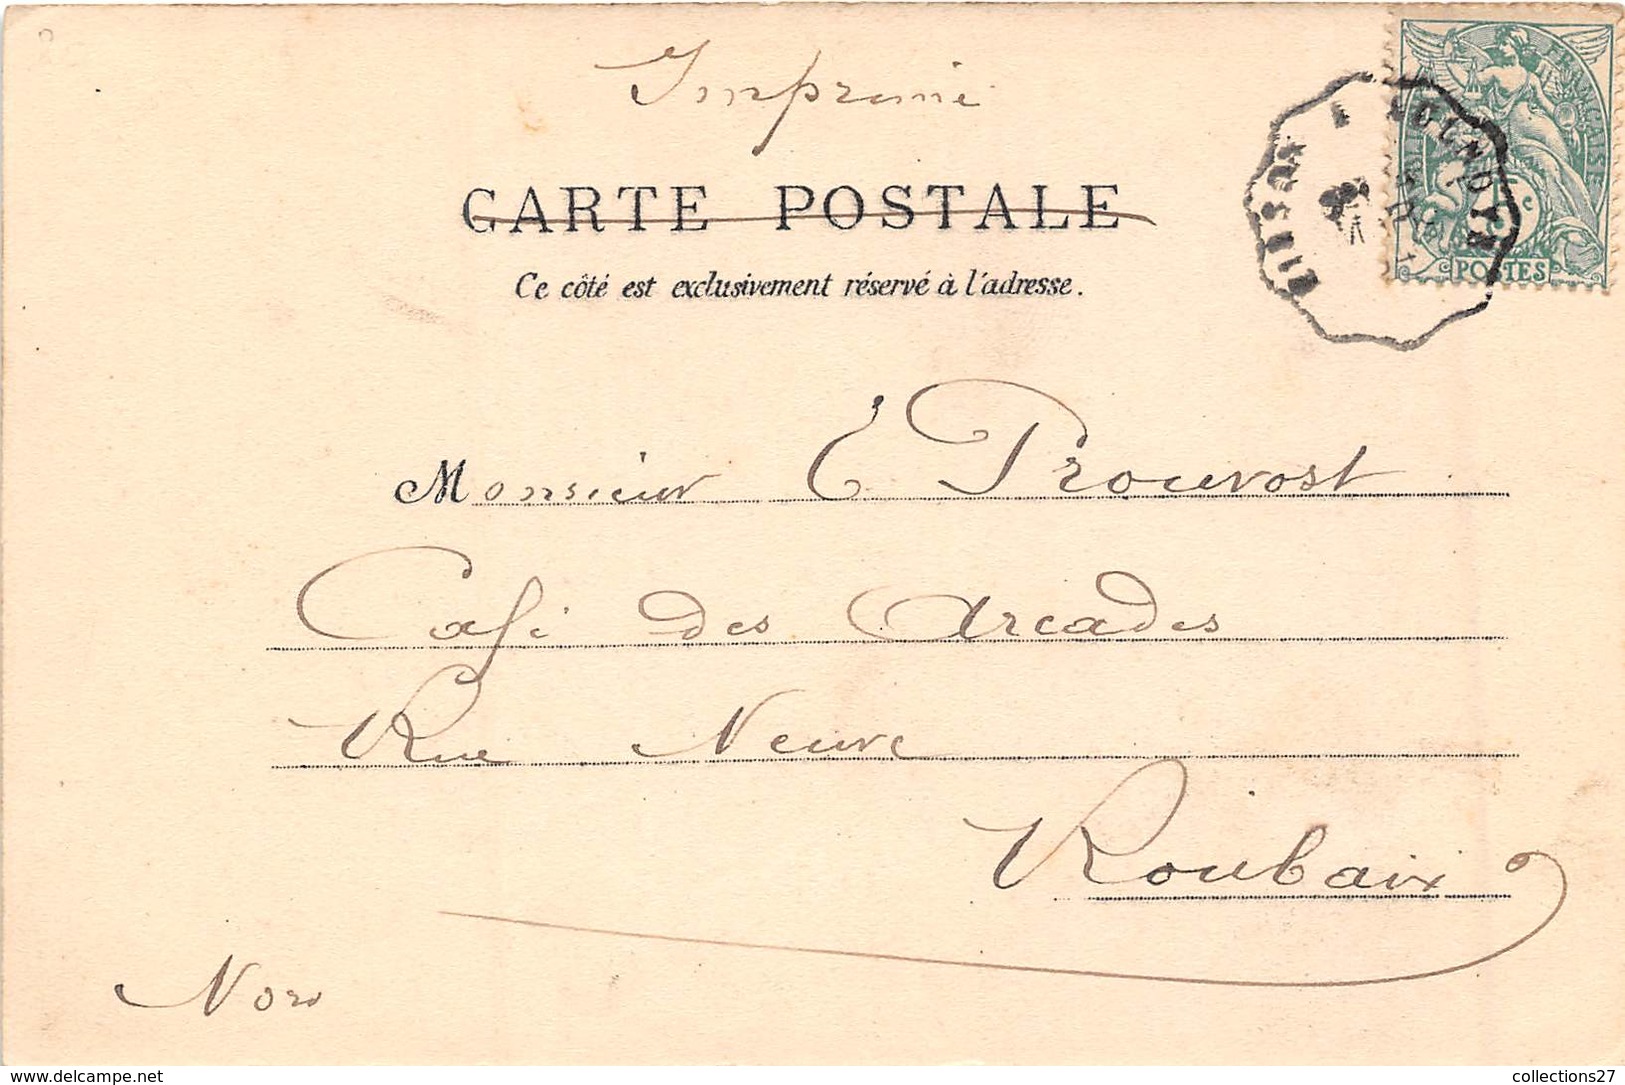 Imprimé
CARTE POSTALE
Ce côté est exclusivement réservé à l'adresse.
FRANÇAISE
POSTES
Monsieur E Prouvost
Café des Arcades
Rue Neuve
Roubaix
Nord
www.delcampe.net
collections27